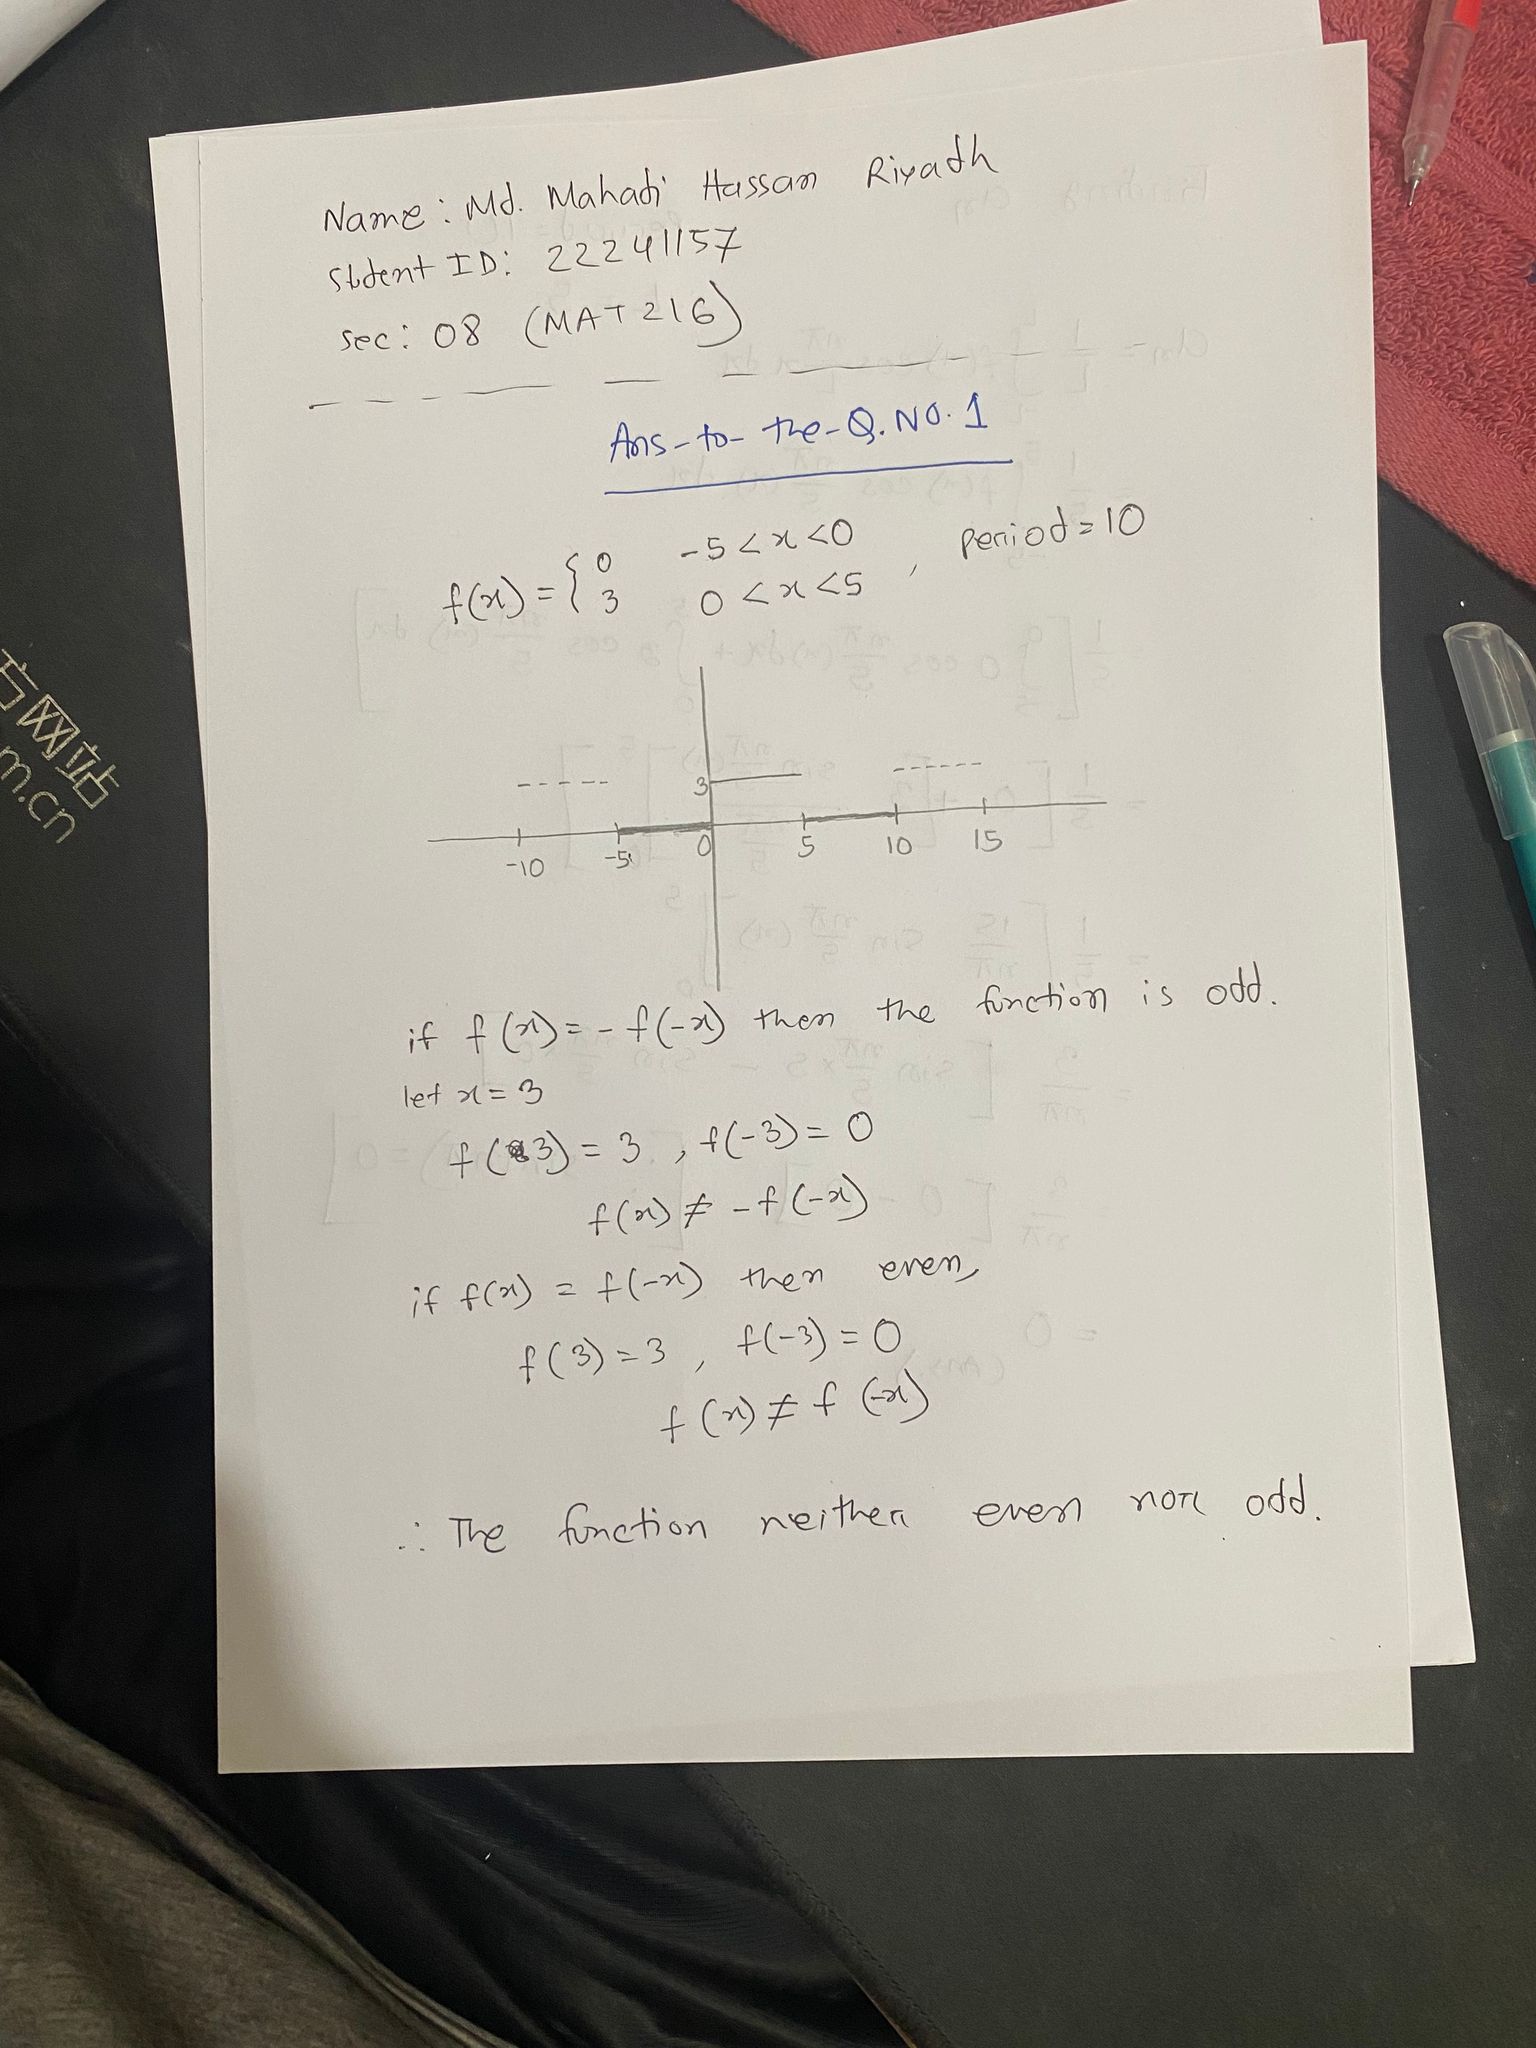 Name : Md. Mahadi Hassan Riyadh
Stdent ID: 22241157
Sec: 08 (MAT216)
Ans-to-the-Q.NO.1
f(x) = { 0 -5 < x < 0 , period = 10
3 0 < x < 5
3
-10 -5 0 5 10 15
if f(x) = - f(-x) then the function is odd.
let x = 3
f(3) = 3 , f(-3) = 0
f(x) ≠ - f(-x)
if f(x) = f(-x) then even,
f(3) = 3 , f(-3) = 0
f(x) ≠ f(-x)
∴ The function neither even nor odd.
方网站
m.cn